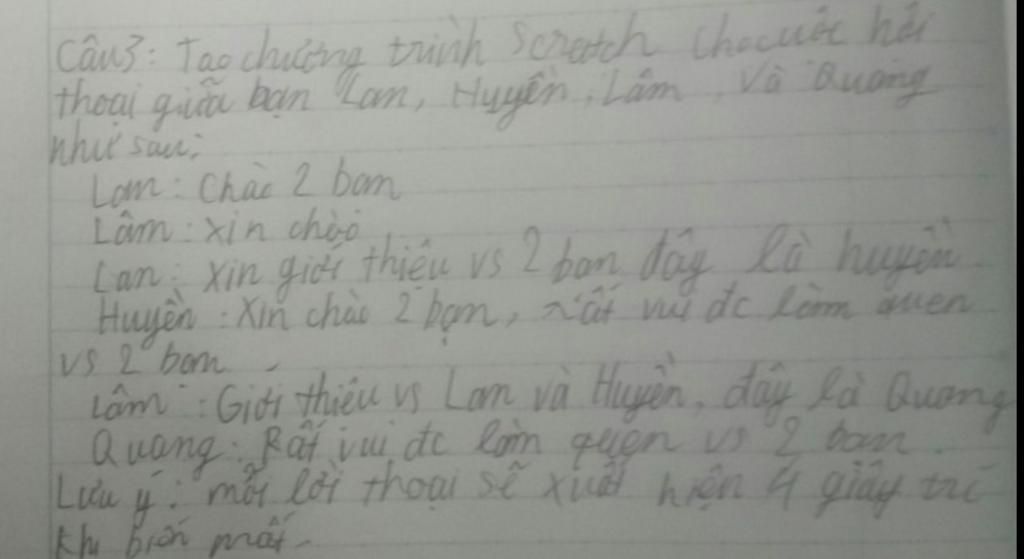 Câu3: Tạo chương trình Scratch cho cuộc hội
thoại giữa bạn Lan, Huyền, Lâm, Và Quang
như sau:
Lan: Chào 2 bạn
Lâm: xin chào
Lan: xin giới thiệu vs 2 bạn đây là huyền
Huyền: Xin chào 2 bạn, rất vui đc làm quen
vs 2 bạn.
Lâm: Giới thiệu vs Lan và Huyền, đây là Quang
Quang: Rất vui đc làm quen vs 2 bạn.
Lưu ý: mỗi lời thoại sẽ xuất hiện 4 giây trc
khi biến mất.